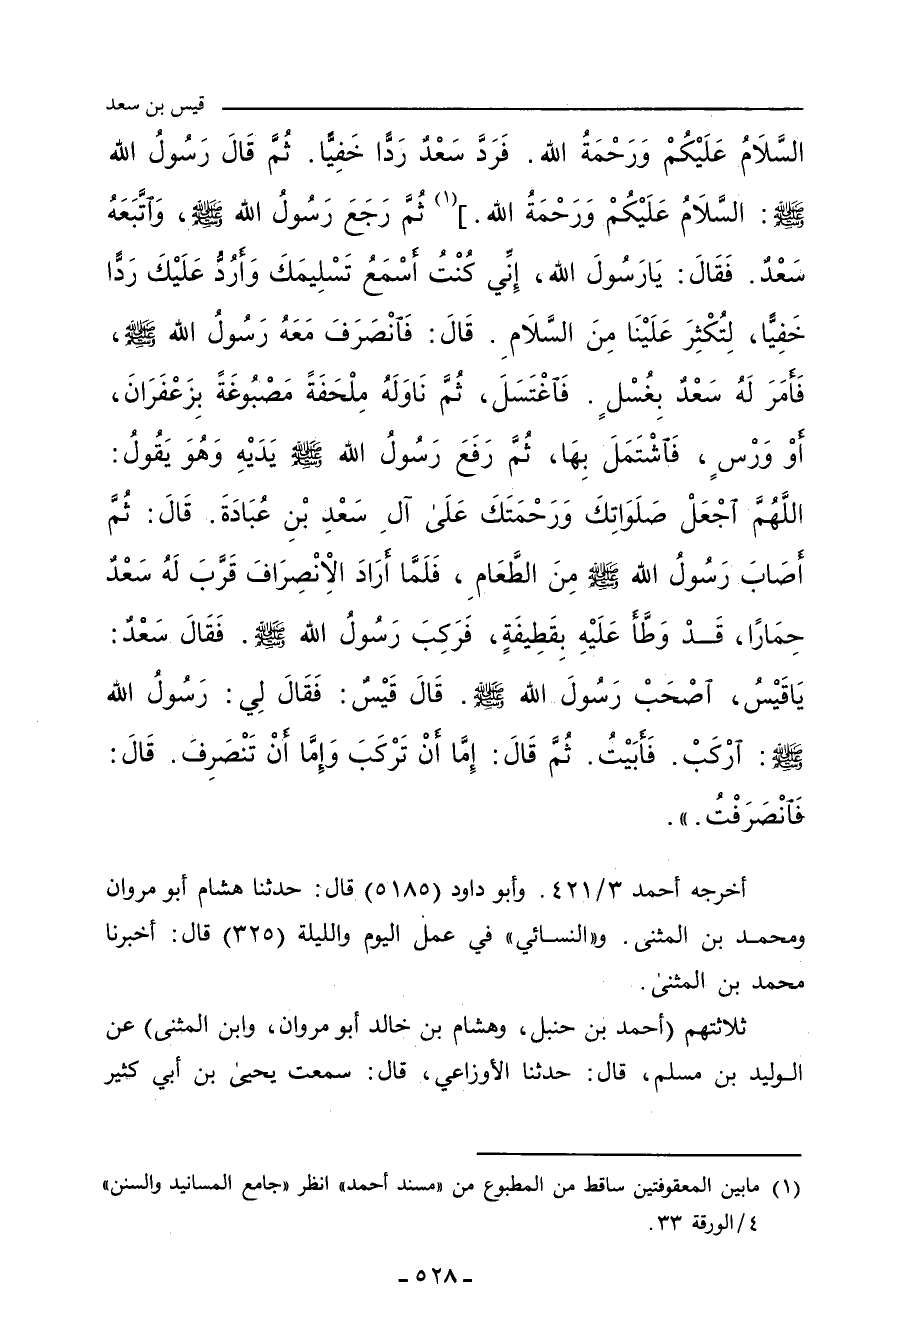 قيس بن سعد
السَّلَامُ عَلَيْكُمْ وَرَحْمَةُ الله. فَرَدَّ سَعْدٌ رَدًّا خَفِيًّا. ثُمَّ قَالَ رَسُولُ الله
ﷺ: السَّلَامُ عَلَيْكُمْ وَرَحْمَةُ الله.](١) ثُمَّ رَجَعَ رَسُولُ الله ﷺ، وَٱتَّبَعَهُ
سَعْدٌ. فَقَالَ: يَارَسُولَ الله، إِنِّي كُنْتُ أَسْمَعُ تَسْلِيمَكَ وَأَرُدُّ عَلَيْكَ رَدًّا
خَفِيًّا، لِتُكْثِرَ عَلَيْنَا مِنَ السَّلَامِ. قَالَ: فَٱنْصَرَفَ مَعَهُ رَسُولُ الله ﷺ،
فَأَمَرَ لَهُ سَعْدٌ بِغُسْلٍ. فَٱغْتَسَلَ، ثُمَّ نَاوَلَهُ مِلْحَفَةً مَصْبُوغَةً بِزَعْفَرَانَ،
أَوْ وَرْسٍ، فَٱشْتَمَلَ بِهَا، ثُمَّ رَفَعَ رَسُولُ الله ﷺ يَدَيْهِ وَهُوَ يَقُولُ:
اللَّهُمَّ ٱجْعَلْ صَلَوَاتِكَ وَرَحْمَتَكَ عَلَىٰ آلِ سَعْدِ بْنِ عُبَادَةَ. قَالَ: ثُمَّ
أَصَابَ رَسُولُ الله ﷺ مِنَ الطَّعَامِ، فَلَمَّا أَرَادَ الِانْصِرَافَ قَرَّبَ لَهُ سَعْدٌ
حِمَارًا، قَـدْ وَطَّأَ عَلَيْهِ بِقَطِيفَةٍ، فَرَكِبَ رَسُولُ الله ﷺ. فَقَالَ سَعْدٌ:
يَاقَيْسُ، ٱصْحَبْ رَسُولَ الله ﷺ. قَالَ قَيْسٌ: فَقَالَ لِي: رَسُولُ الله
ﷺ: ٱرْكَبْ. فَأَبَيْتُ. ثُمَّ قَالَ: إِمَّا أَنْ تَرْكَبَ وَإِمَّا أَنْ تَنْصَرِفَ. قَالَ:
فَٱنْصَرَفْتُ.».
أخرجه أحمد ٤٢١/٣. وأبو داود (٥١٨٥) قال: حدثنا هشام أبو مروان
ومحمـد بن المثنى. و«النسائي» في عمل اليوم والليلة (٣٢٥) قال: أخبرنا
محمد بن المثنىٰ.
ثلاثتهم (أحمد بن حنبل، وهشام بن خالد أبو مروان، وابن المثنى) عن
الـوليد بن مسلم، قال: حدثنا الأوزاعي، قال: سمعت يحيىٰ بن أبي كثير
(١) مابين المعقوفتين ساقط من المطبوع من «مسند أحمد» انظر «جامع المسانيد والسنن»
٤/الورقة ٣٣.
- ٥٢٨ -